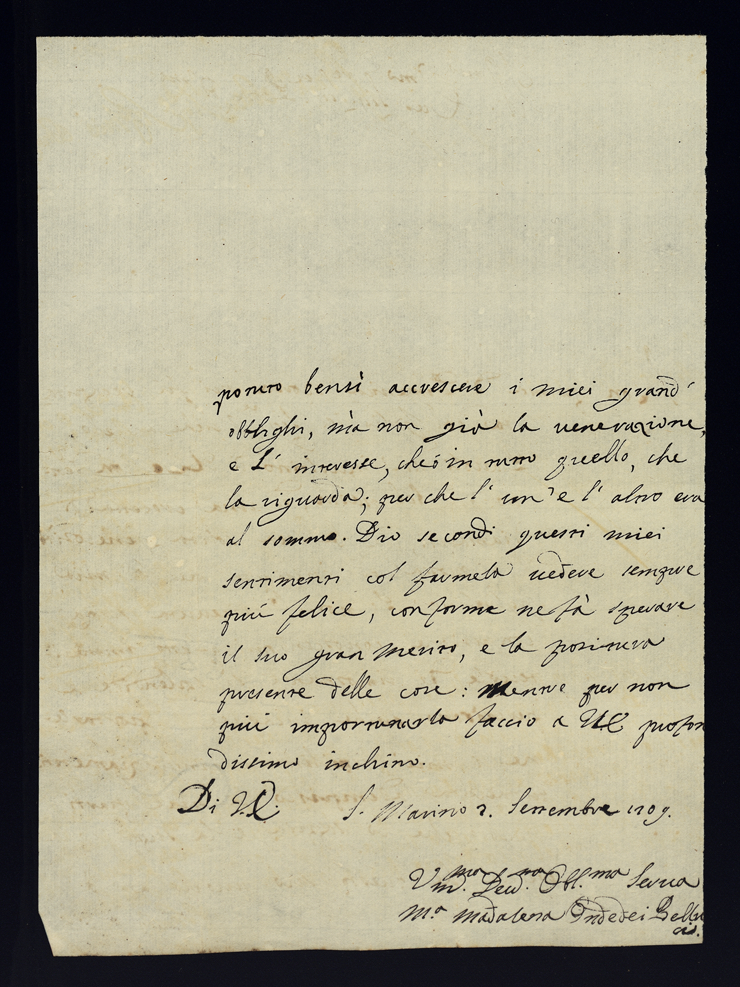 potuto bensì accrescere i miei grand'
obblighi, mà non già la venerazione,
e l' interesse, che ò in tutto quello, che
la riguarda; per che l' un' e l' altro era
al sommo. Dio secondi questi miei
sentimenti col farmela vedere sempre
più felice, conforme ne fà sperare
il suo gran merito, e la positura
presente delle cose: mentre per non
più importunarla faccio a VE profon
dissimo inchino.
Di VE. S. Marino 2. Settembre 1709.
Um.ma Dev.ma Obl.ma Serva
M.a Madalena Ondedei Bellu
ci.